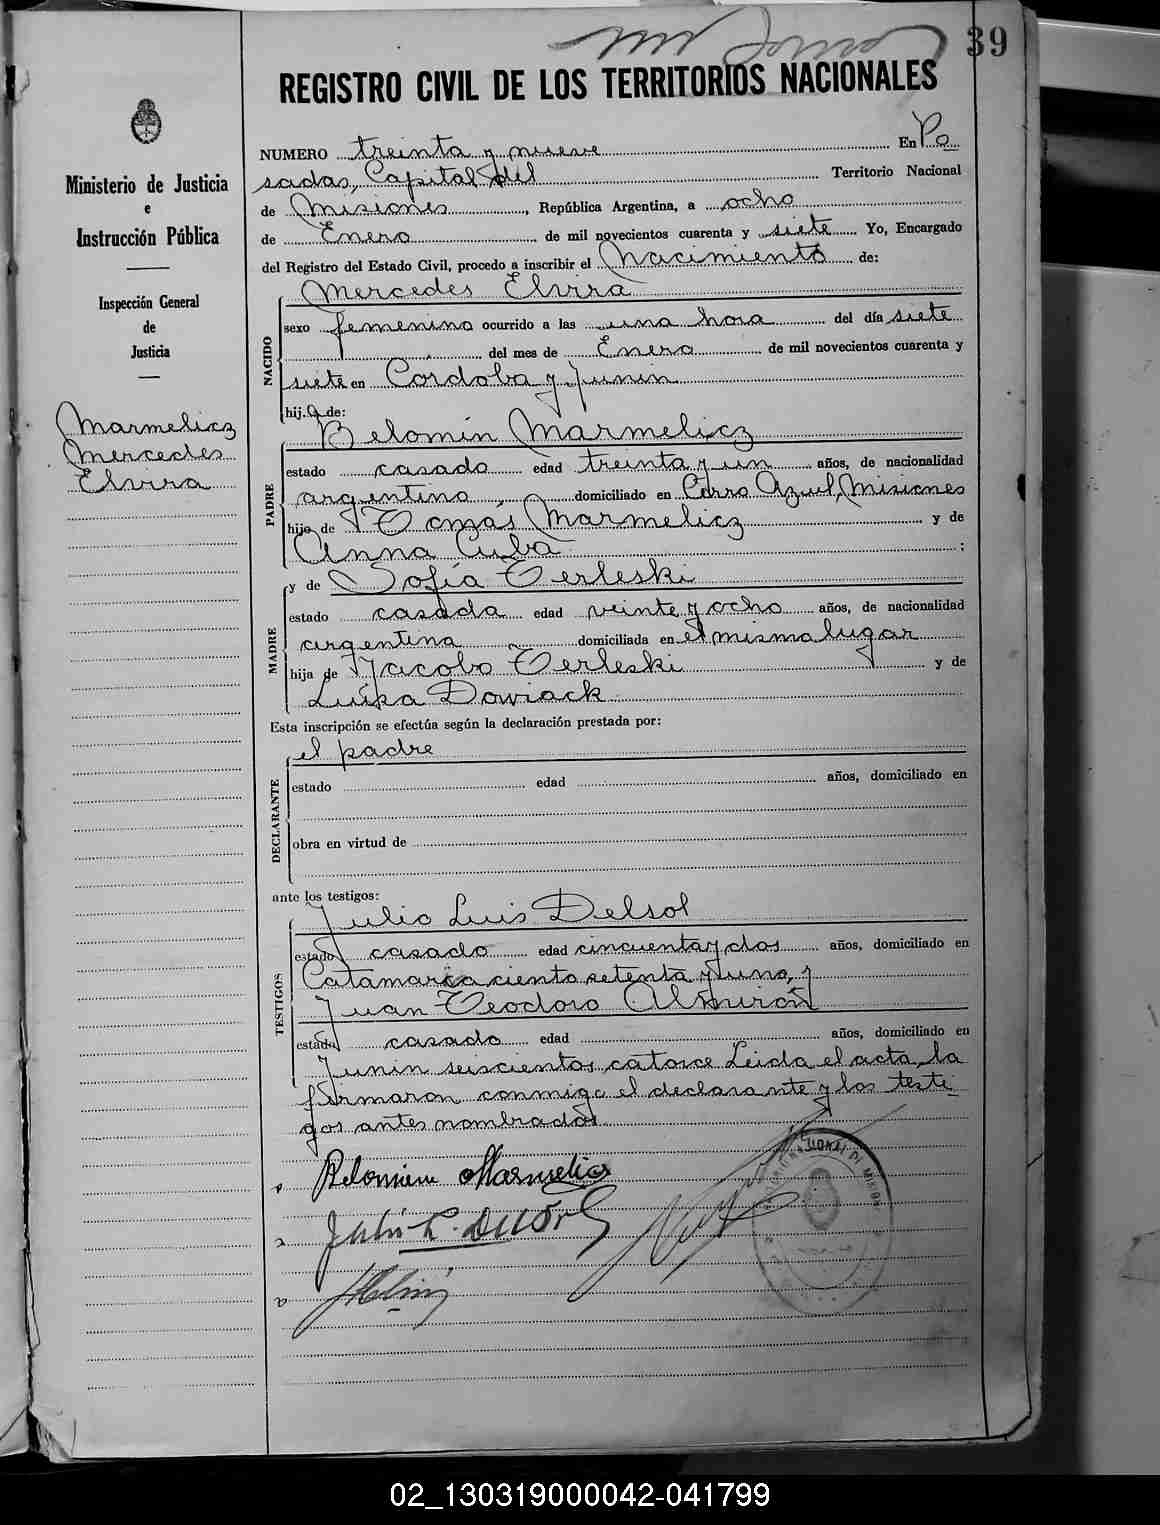 39
REGISTRO CIVIL DE LOS TERRITORIOS NACIONALES
Ministerio de Justicia
e
Instrucción Pública
Inspección General
de
Justicia
Marmelicz
Mercedes
Elvira
NUMERO treinta y nueve En Po
sadas, Capital del Territorio Nacional
de Misiones, República Argentina, a ocho
de Enero de mil novecientos cuarenta y siete Yo, Encargado
del Registro del Estado Civil, procedo a inscribir el Nacimiento de:
NACIDO
Mercedes Elvira
sexo femenino ocurrido a las una hora del día siete
del mes de Enero de mil novecientos cuarenta y
siete en Córdoba y Junin
hija de:
PADRE
Belomin Marmelicz
estado casado edad treinta y un años, de nacionalidad
argentino, domiciliado en Cerro Azul, Misiones
hijo de Tomás Marmelicz y de
Anna Cuba ;
MADRE
y de Sofía Terleski
estado casada edad veinte y ocho años, de nacionalidad
argentina domiciliada en el mismo lugar
hija de Jacobo Terleski y de
Luisa Dowiack
Esta inscripción se efectúa según la declaración prestada por:
DECLARANTE
el padre
estado edad años, domiciliado en
obra en virtud de
ante los testigos:
TESTIGOS
Julio Luis Delsol
estado casado edad cincuenta y dos años, domiciliado en
Catamarca ciento setenta y uno, y
Juan Teodoro Almirón
estado casado edad años, domiciliado en
Junin seiscientos catorce Leida el acta, la
firmaron conmigo el declarante y los testi-
gos antes nombrados
Belomin Marmelicz
02_130319000042-041799